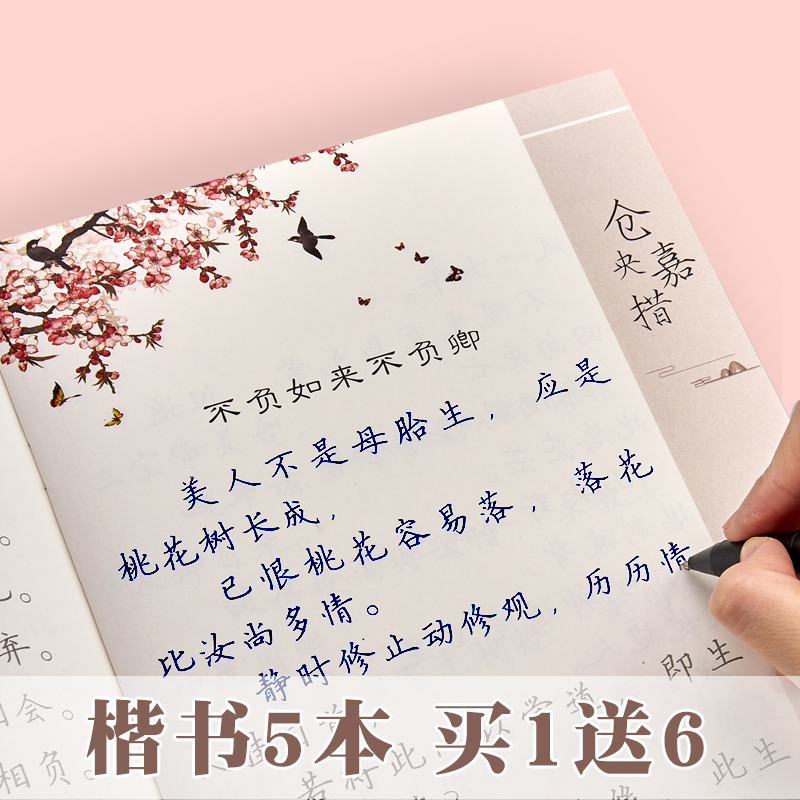 仓央嘉措
不负如来不负卿
美人不是母胎生，应是
桃花树长成，
已恨桃花容易落，落花
比汝尚多情。
静时修止动修观，历历情
即生
弃。
会。
相负。
此生
楷书5本 买1送6